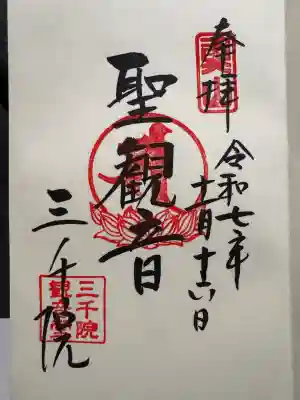 奉拝
令和七年
十一月十六日
聖観音
三千院
三千院